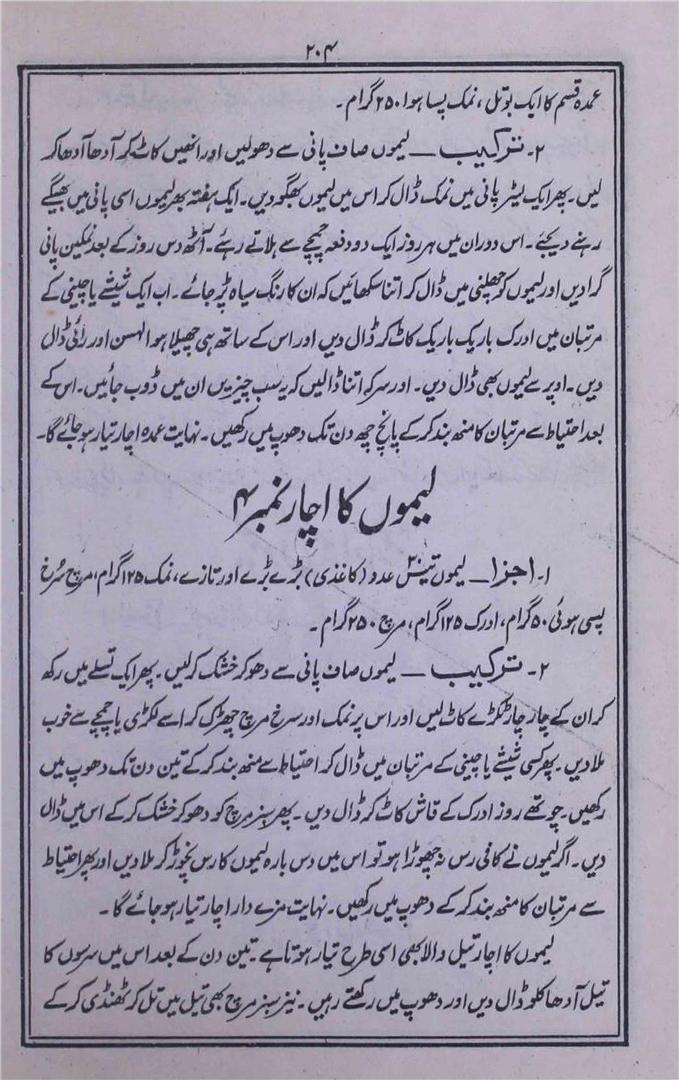 ۲۰۴
عمدہ قسم کا ایک بوتل، نمک پسا ہوا ۲۵۰ گرام۔
۲۔ ترکیب — لیموں صاف پانی سے دھولیں اور انھیں کاٹ کر آدھا آدھا کر
لیں۔ پھر ایک لیٹر پانی میں نمک ڈال کر اس میں لیموں بھگو دیں۔ ایک ہفتہ بھر لیموں اسی پانی میں بھیگے
رہنے دیجئے۔ اس دوران میں ہر روز ایک دو دفعہ چمچے سے ہلاتے رہئے۔ آٹھ دس روز کے بعد نمکین پانی
گرادیں اور لیموں کو چھلنی میں ڈال کر اتنا سکھائیں کہ ان کا رنگ سیاہ پڑ جائے۔ اب ایک شیشے یا چینی کے
مرتبان میں ادرک باریک باریک کاٹ کر ڈال دیں اور اس کے ساتھ ہی چھیلا ہوا لہسن اور رائی ڈال
دیں۔ اوپر سے لیموں بھی ڈال دیں۔ اور سرکہ اتنا ڈالیں کہ یہ سب چیزیں ان میں ڈوب جائیں۔ اس کے
بعد احتیاط سے مرتبان کا منھ بند کر کے پانچ چھ دن تک دھوپ میں رکھیں۔ نہایت عمدہ اچار تیار ہو جائے گا۔
لیموں کا اچار نمبر ۴
۱۔ اجزا — لیموں تیس عدد (کاغذی) بڑے بڑے اور تازے، نمک ۱۲۵ گرام، مرچ سُرخ
پسی ہوئی ۵۰ گرام، ادرک ۱۲۵ گرام، مرچ ۲۵۰ گرام۔
۲۔ ترکیب — لیموں صاف پانی سے دھو کر خشک کرلیں۔ پھر ایک تسلے میں رکھ
کر ان کے چار چار ٹکڑے کاٹ لیں اور اس پر نمک اور سرخ مرچ چھڑک کر اسے لکڑی یا چمچے سے خوب
ملا دیں۔ پھر کسی شیشے یا چینی کے مرتبان میں ڈال کر احتیاط سے منھ بند کر کے تین دن تک دھوپ میں
رکھیں۔ چوتھے روز ادرک کے قاش کاٹ کر ڈال دیں۔ پھر سبز مرچ کو دھو کر خشک کر کے اس میں ڈال
دیں۔ اگر لیموں نے کافی رس نہ چھوڑا ہو تو اس میں دس بارہ لیموں کا رس نچوڑ کر ملا دیں اور پھر احتیاط
سے مرتبان کا منھ بند کر کے دھوپ میں رکھیں۔ نہایت مزے دار اچار تیار ہو جائے گا۔
لیموں کا اچار تیل والا بھی اسی طرح تیار ہوتا ہے۔ تین دن کے بعد اس میں سرسوں کا
تیل آدھا کلو ڈال دیں اور دھوپ میں رکھتے رہیں۔ نیز سبز مرچ بھی تیل میں تل کر ٹھنڈی کر کے